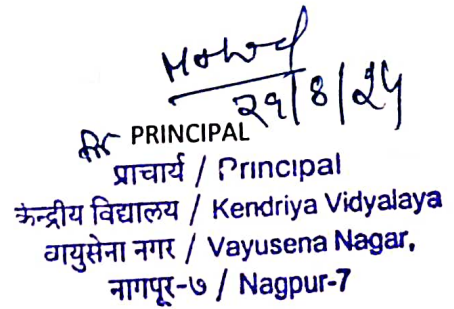 २९/8/24
for PRINCIPAL
प्राचार्य / Principal
केन्द्रीय विद्यालय / Kendriya Vidyalaya
वायुसेना नगर / Vayusena Nagar,
नागपूर-७ / Nagpur-7